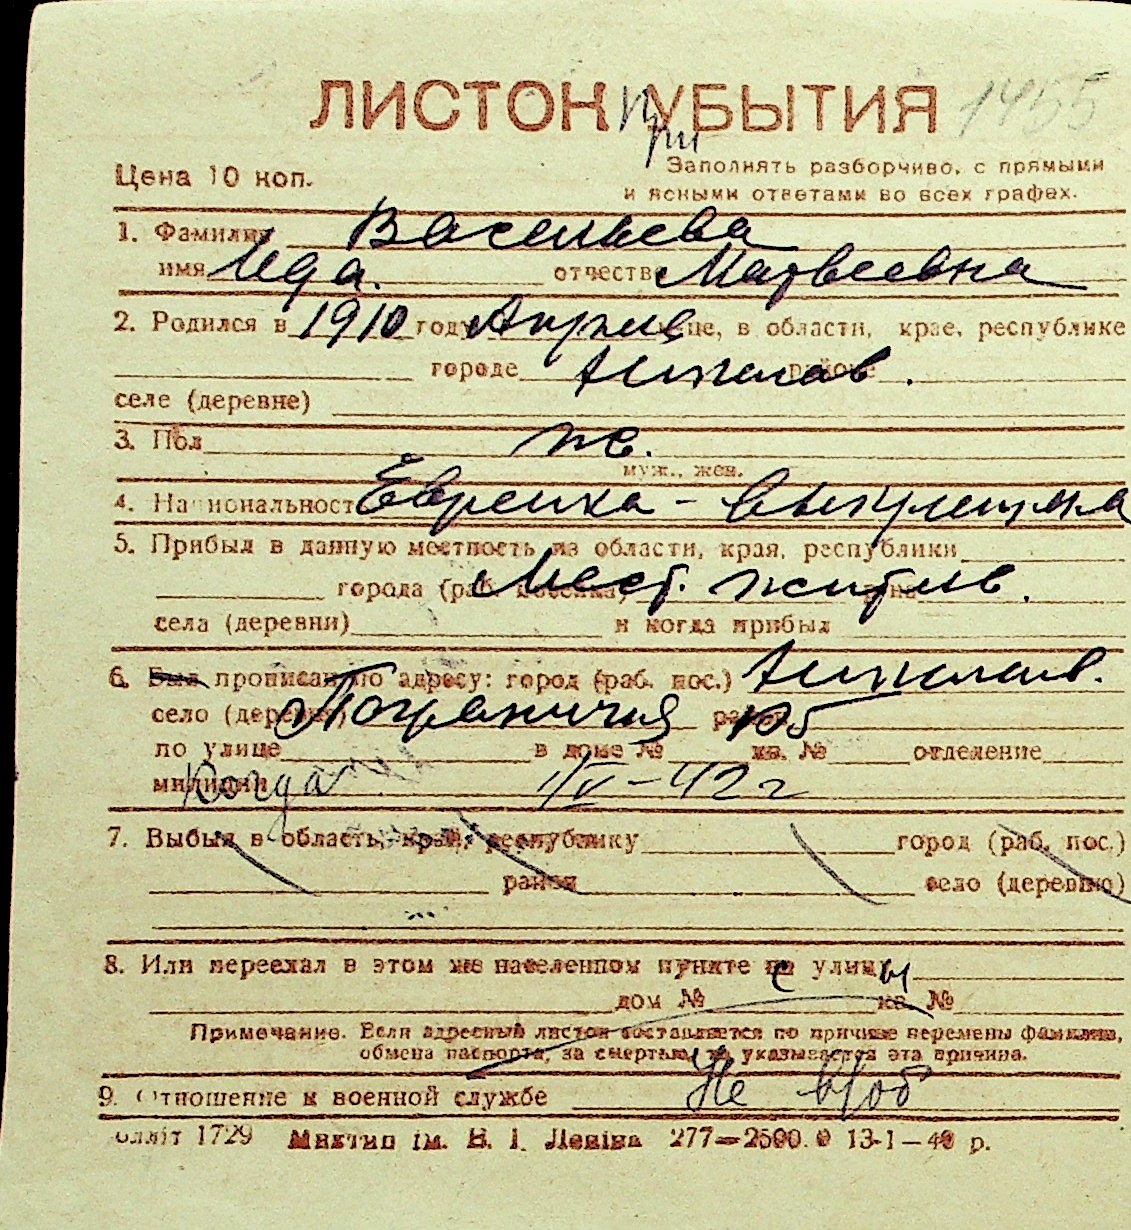 ЛИСТОК при УБЫТИЯ 1455
Цена 10 коп.
Заполнять разборчиво, с прямыми
и ясными ответами во всех графах.
1. Фамилия Васильева
имя Ида. отчество Матвеевна
2. Родился в 1910 году Апрель це, в области, крае, республике
городе Николаев. районе
селе (деревне)
3. Пол ж.
муж., жен.
4. Национальность Еврейка -
5. Прибыл в данную местность из области, края, республики
города (раб. поселка) Мест. житель. на
села (деревни) и когда прибыл
6. Был прописан по адресу: город (раб. пос.) Николаев.
село (деревня) Пограничная район 105
по улице в доме № кв. № отделение
милиции Когда 1/V-42 г
7. Выбыл в область, край, республику город (раб. пос.)
район село (деревню)
8. Или переехал в этом же населенном пункте с улицы
дом № кв. №
Примечание. Если адресный листок составляется по причине перемены фамилии,
обмена паспорта, за смертью, то указывается эта причина.
9. Отношение к военной службе Не в/об
блліт 1729 Миктип ім. В. І. Леніна 277—2500. 13-1—40 р.